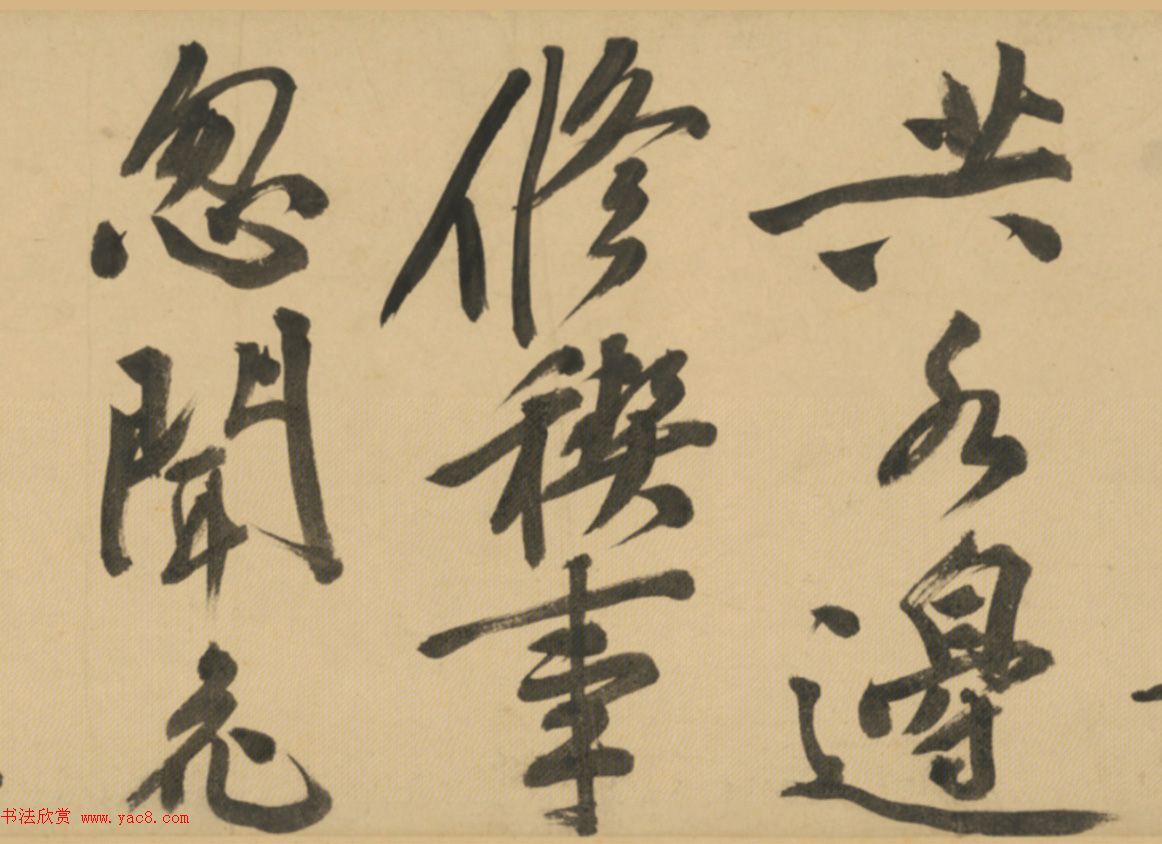 共水邊
修禊事
忽聞花
书法欣赏 www.yac8.com